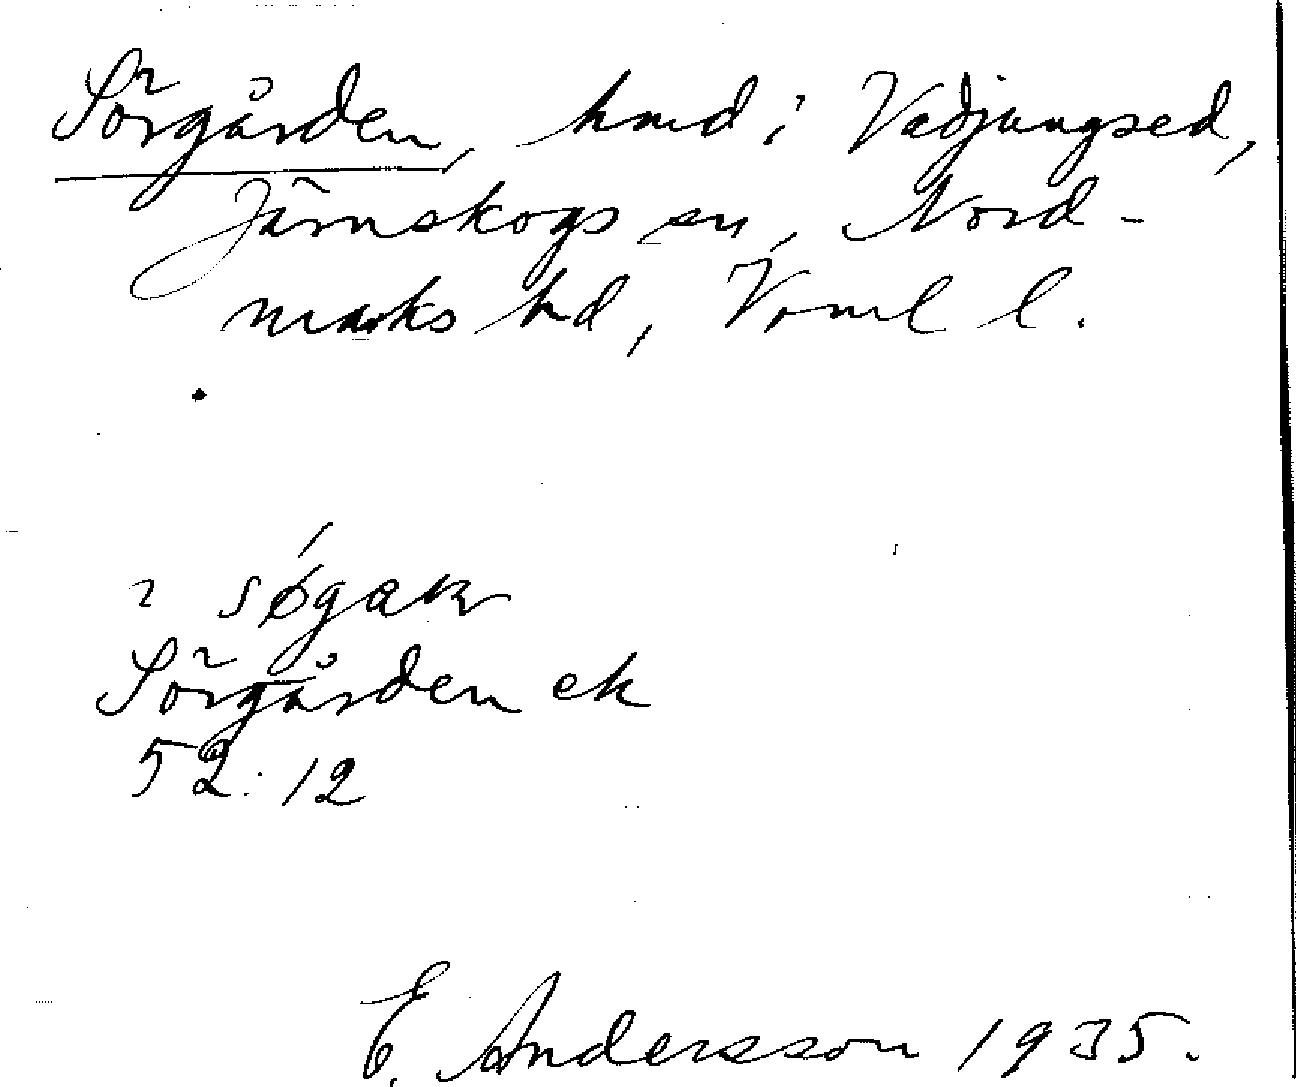 Sörgården, hmd i Vadjungsed,
Järnskogs sn, Nord-
marks hd, Vrml l.
Sörgården ek
52:12
E. Andersson 1935.